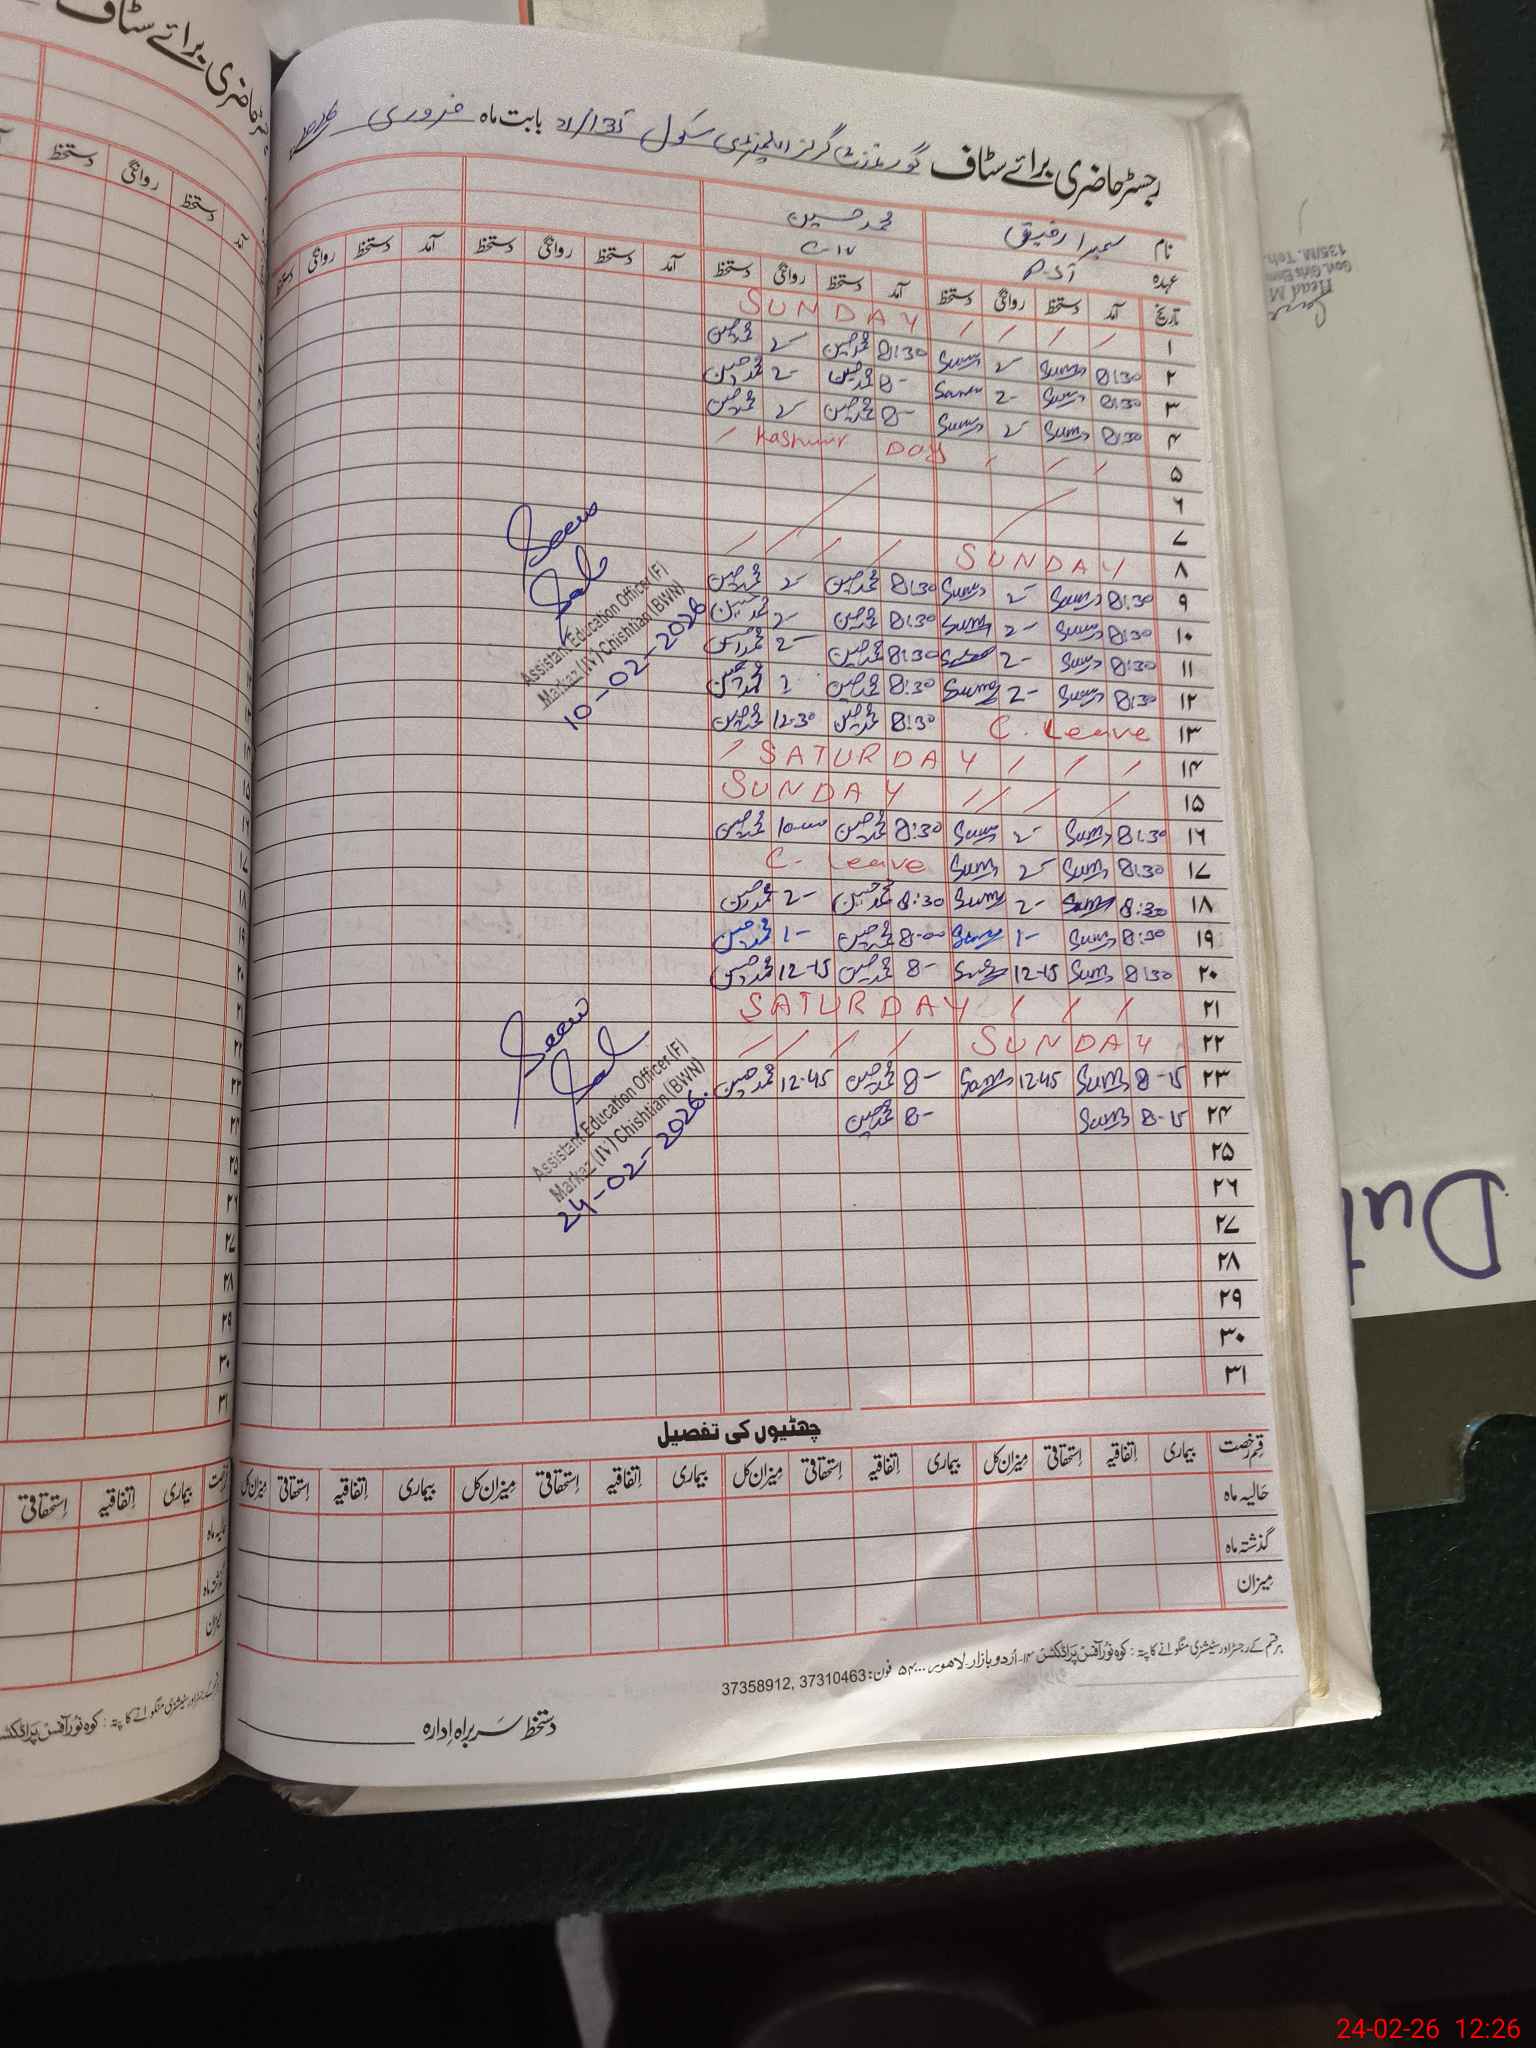 رجسٹر حاضری برائے سٹاف گورنمنٹ گرلز ایلیمنٹری سکول 135 بابت ماہ فروری 2026
نام سمیرا رفیق محمد حسین
عہدہ C-IV
تاریخ آمد دستخط روانگی دستخط آمد دستخط روانگی دستخط آمد دستخط روانگی دستخط آمد دستخط روانگی دستخط
۱ / / / / SUNDAY
۲ 8:30 Sum 2 Sum 8:30 محمد حسین 2 محمد حسین
۳ 8:30 Sum 2- Sum 8- محمد حسین 2- محمد حسین
۴ 8:30 Sum 2 Sum 8- محمد حسین 2 محمد حسین
۵ / / / Kashmir Day /
۶
۷
۸ SUNDAY / / / /
۹ 8:30 Sum 2- Sum 8:30 محمد حسین 2 محمد حسین
۱۰ 8:30 Sum 2- Sum 8:30 محمد حسین 2- محمد حسین
۱۱ 8:30 Sum 2- 8:30 محمد حسین 2- محمد حسین
۱۲ 8:30 Sum 2- Sum 8:30 محمد حسین محمد حسین
۱۳ C. Leave 8:30 محمد حسین 12-30 محمد حسین
۱۴ / / / SATURDAY /
۱۵ / / / / SUNDAY
۱۶ 8:30 Sum 2- Sum 8:30 محمد حسین 10-00 محمد حسین
۱۷ 8:30 Sum 2 Sum C- Leave
۱۸ 8:30 Sum 2- Sum 8:30 محمد حسین 2- محمد حسین
۱۹ 8:30 Sum 1- Sum 8-00 محمد حسین 1- محمد حسین
۲۰ 8:30 Sum 12-15 Sum 8- محمد حسین 12-15 محمد حسین
۲۱ / / / SATURDAY
۲۲ SUNDAY / / / /
۲۳ 8-15 Sum 12-45 Sum 8- محمد حسین 12-45 محمد حسین
۲۴ 8-15 Sum 8- محمد حسین
۲۵
۲۶
۲۷
۲۸
۲۹
۳۰
۳۱
Seen
Assistant Education Officer (F)
Markaz (IV) Chishtian (BWN)
10-02-2026
Seen
Assistant Education Officer (F)
Markaz (IV) Chishtian (BWN)
24-02-2026
چھٹیوں کی تفصیل
قسم رخصت بیماری اتفاقیہ استحقاقی میزان کل بیماری اتفاقیہ استحقاقی میزان کل بیماری اتفاقیہ استحقاقی میزان کل بیماری اتفاقیہ استحقاقی میزان کل
حالیہ ماہ
گذشتہ ماہ
میزان
ہر قسم کے رجسٹر اور سٹیشنری منگوانے کا پتہ : کوہ نور آفس پراڈکٹس ۱۴- اردو بازار لاہور ۵۴۰۰۰ فون: 37310463, 37358912
دستخط سربراہ ادارہ
رجسٹر حاضری برائے سٹاف
آمد دستخط روانگی دستخط
۱۵
۱۶
۱۷
۱۸
۱۹
۲۰
۲۱
۲۲
۲۳
۲۴
۲۵
۲۶
۲۷
۲۸
۲۹
۳۰
۳۱
بیماری اتفاقیہ استحقاقی
حالیہ ماہ
گذشتہ ماہ
میزان
کوہ نور آفس پراڈکٹس
Head M
Govt. Girls Elem
135/M. Teh.
Dut
24-02-26 12:26